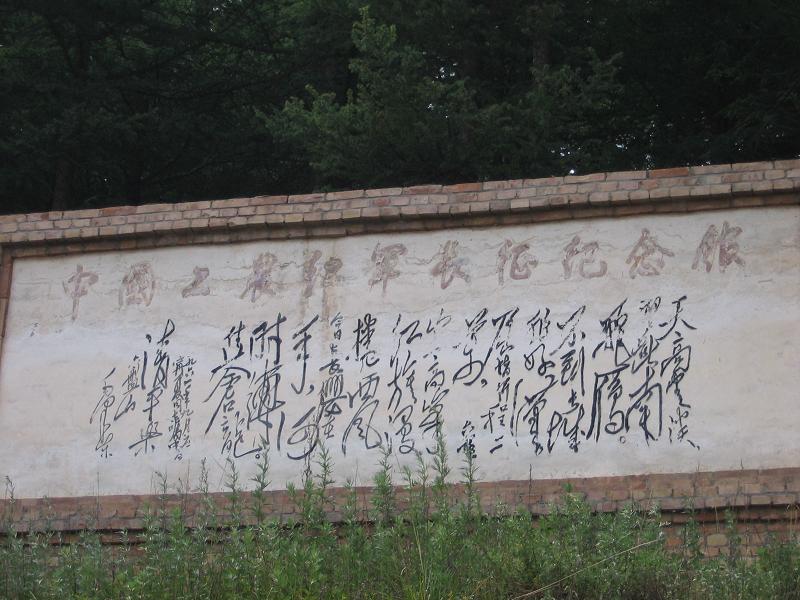 中國工農紅軍長征紀念館
天高雲淡、
望断南
飛雁。
不到長城
非好漢
屈指行程二
万。六盤
山上高峰
紅旗漫
捲西風
今日長纓在
手，何
時縛
住蒼龍
清平樂
六盤山
毛澤東